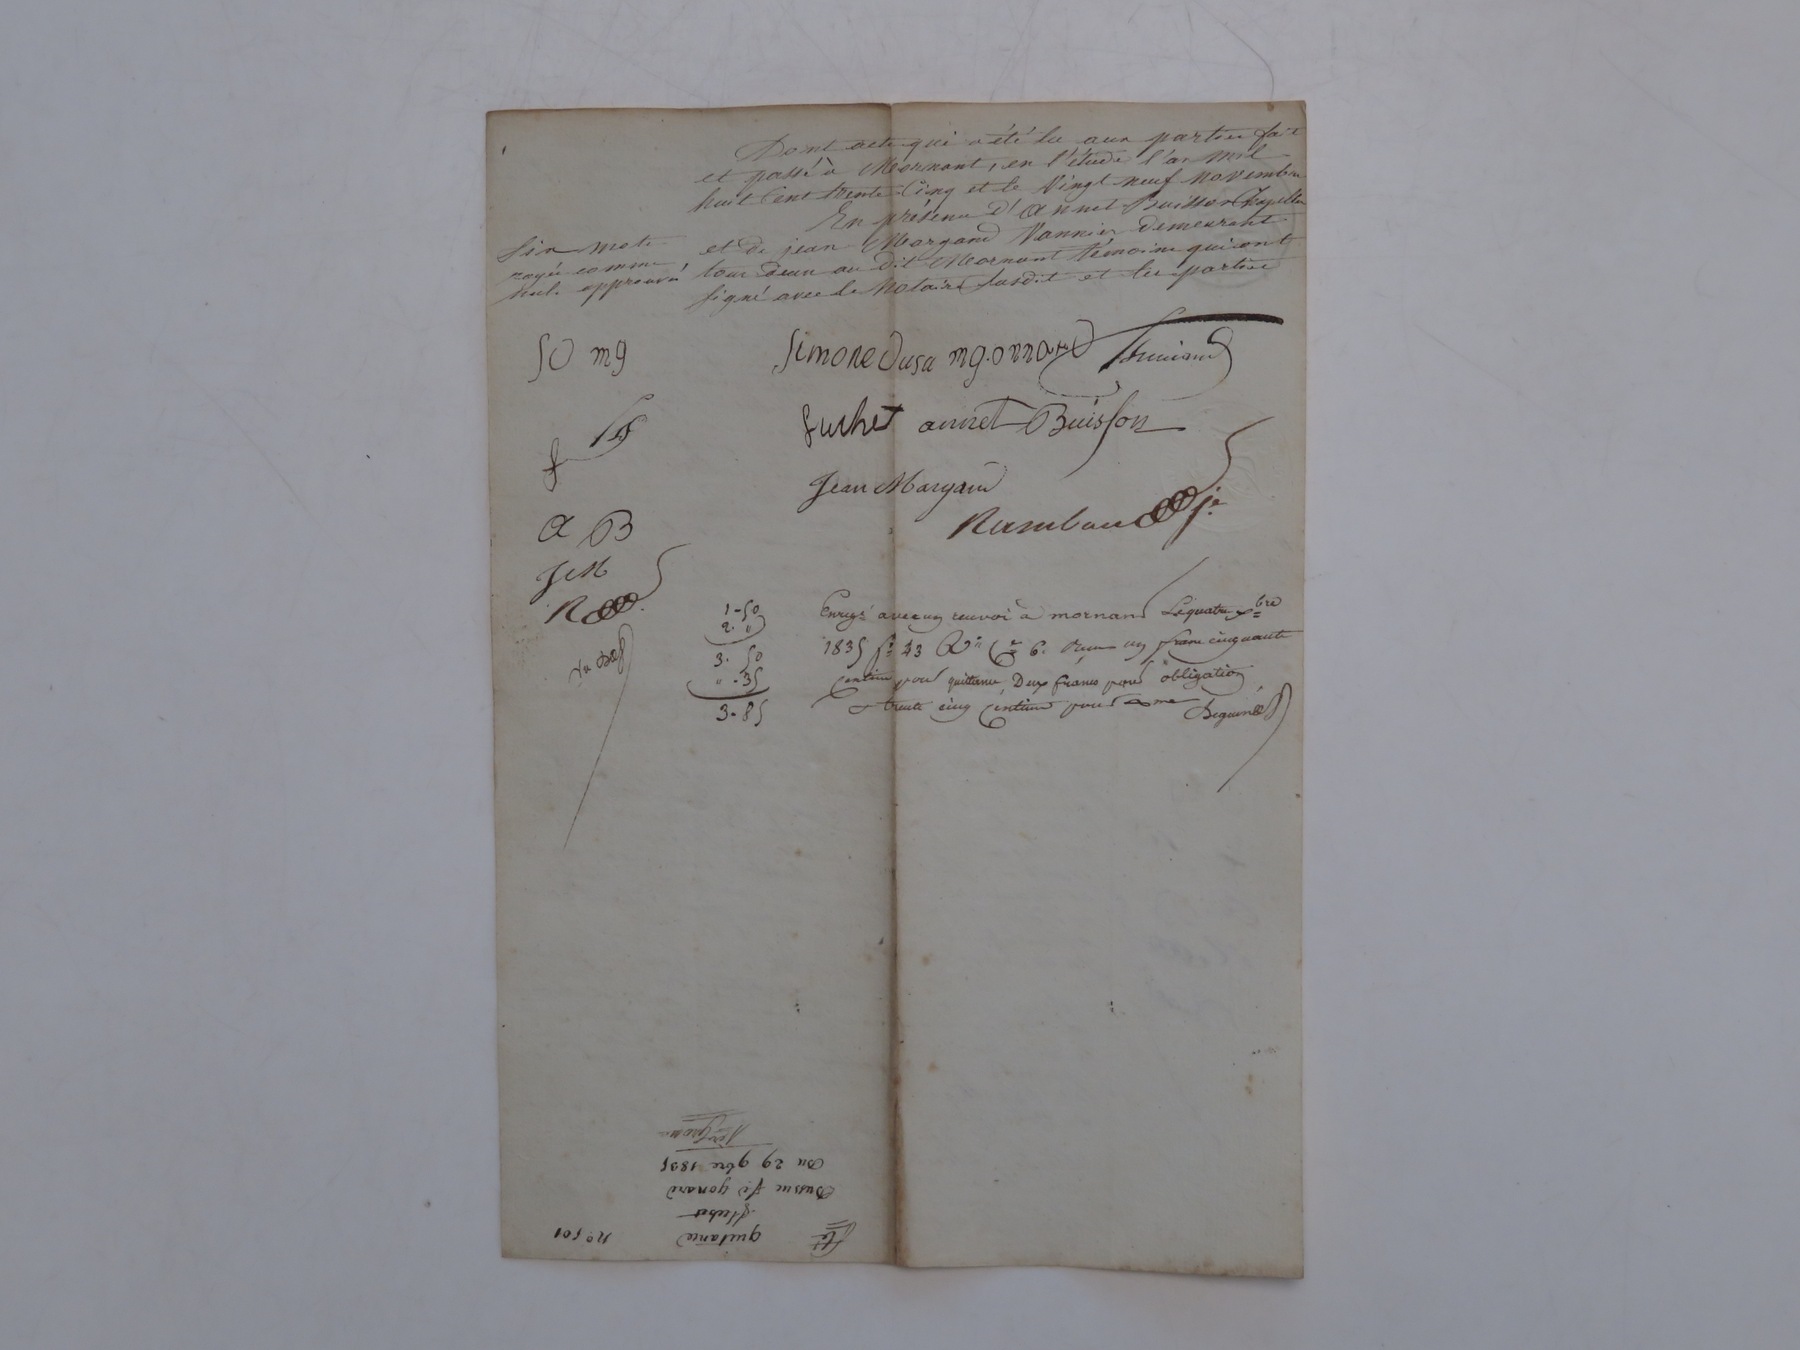 Dont acte qui a été lu aux parties fait
et passé à Mornant, en l'étude l'an mil
huit cent trente cinq et le vingt neuf novembre
En présence d'annet Buisson
et de jean Margand Vannier demeurant
tous deux au dit Mornant témoins qui ont
signé avec le Notaire susdit et les parties
six mots
rayés comme
nuls approuvé
SD mg
simone dusu mg.onnard
fuchet annet Buisson
Jean Margand
a B
JM
R
1-50
2. "
3. 50
" - 35
3-85
Enregé avec un renvoi à mornant Le quatre xbre
1835 fo 43 Ro Ce 6. Reçu un franc cinquante
centimes pour quittance, Deux francs pour obligation
& trente cinq centimes pour
no 501
quitance
fuchet
Dussuc gonard
Du 29 9bre 1835